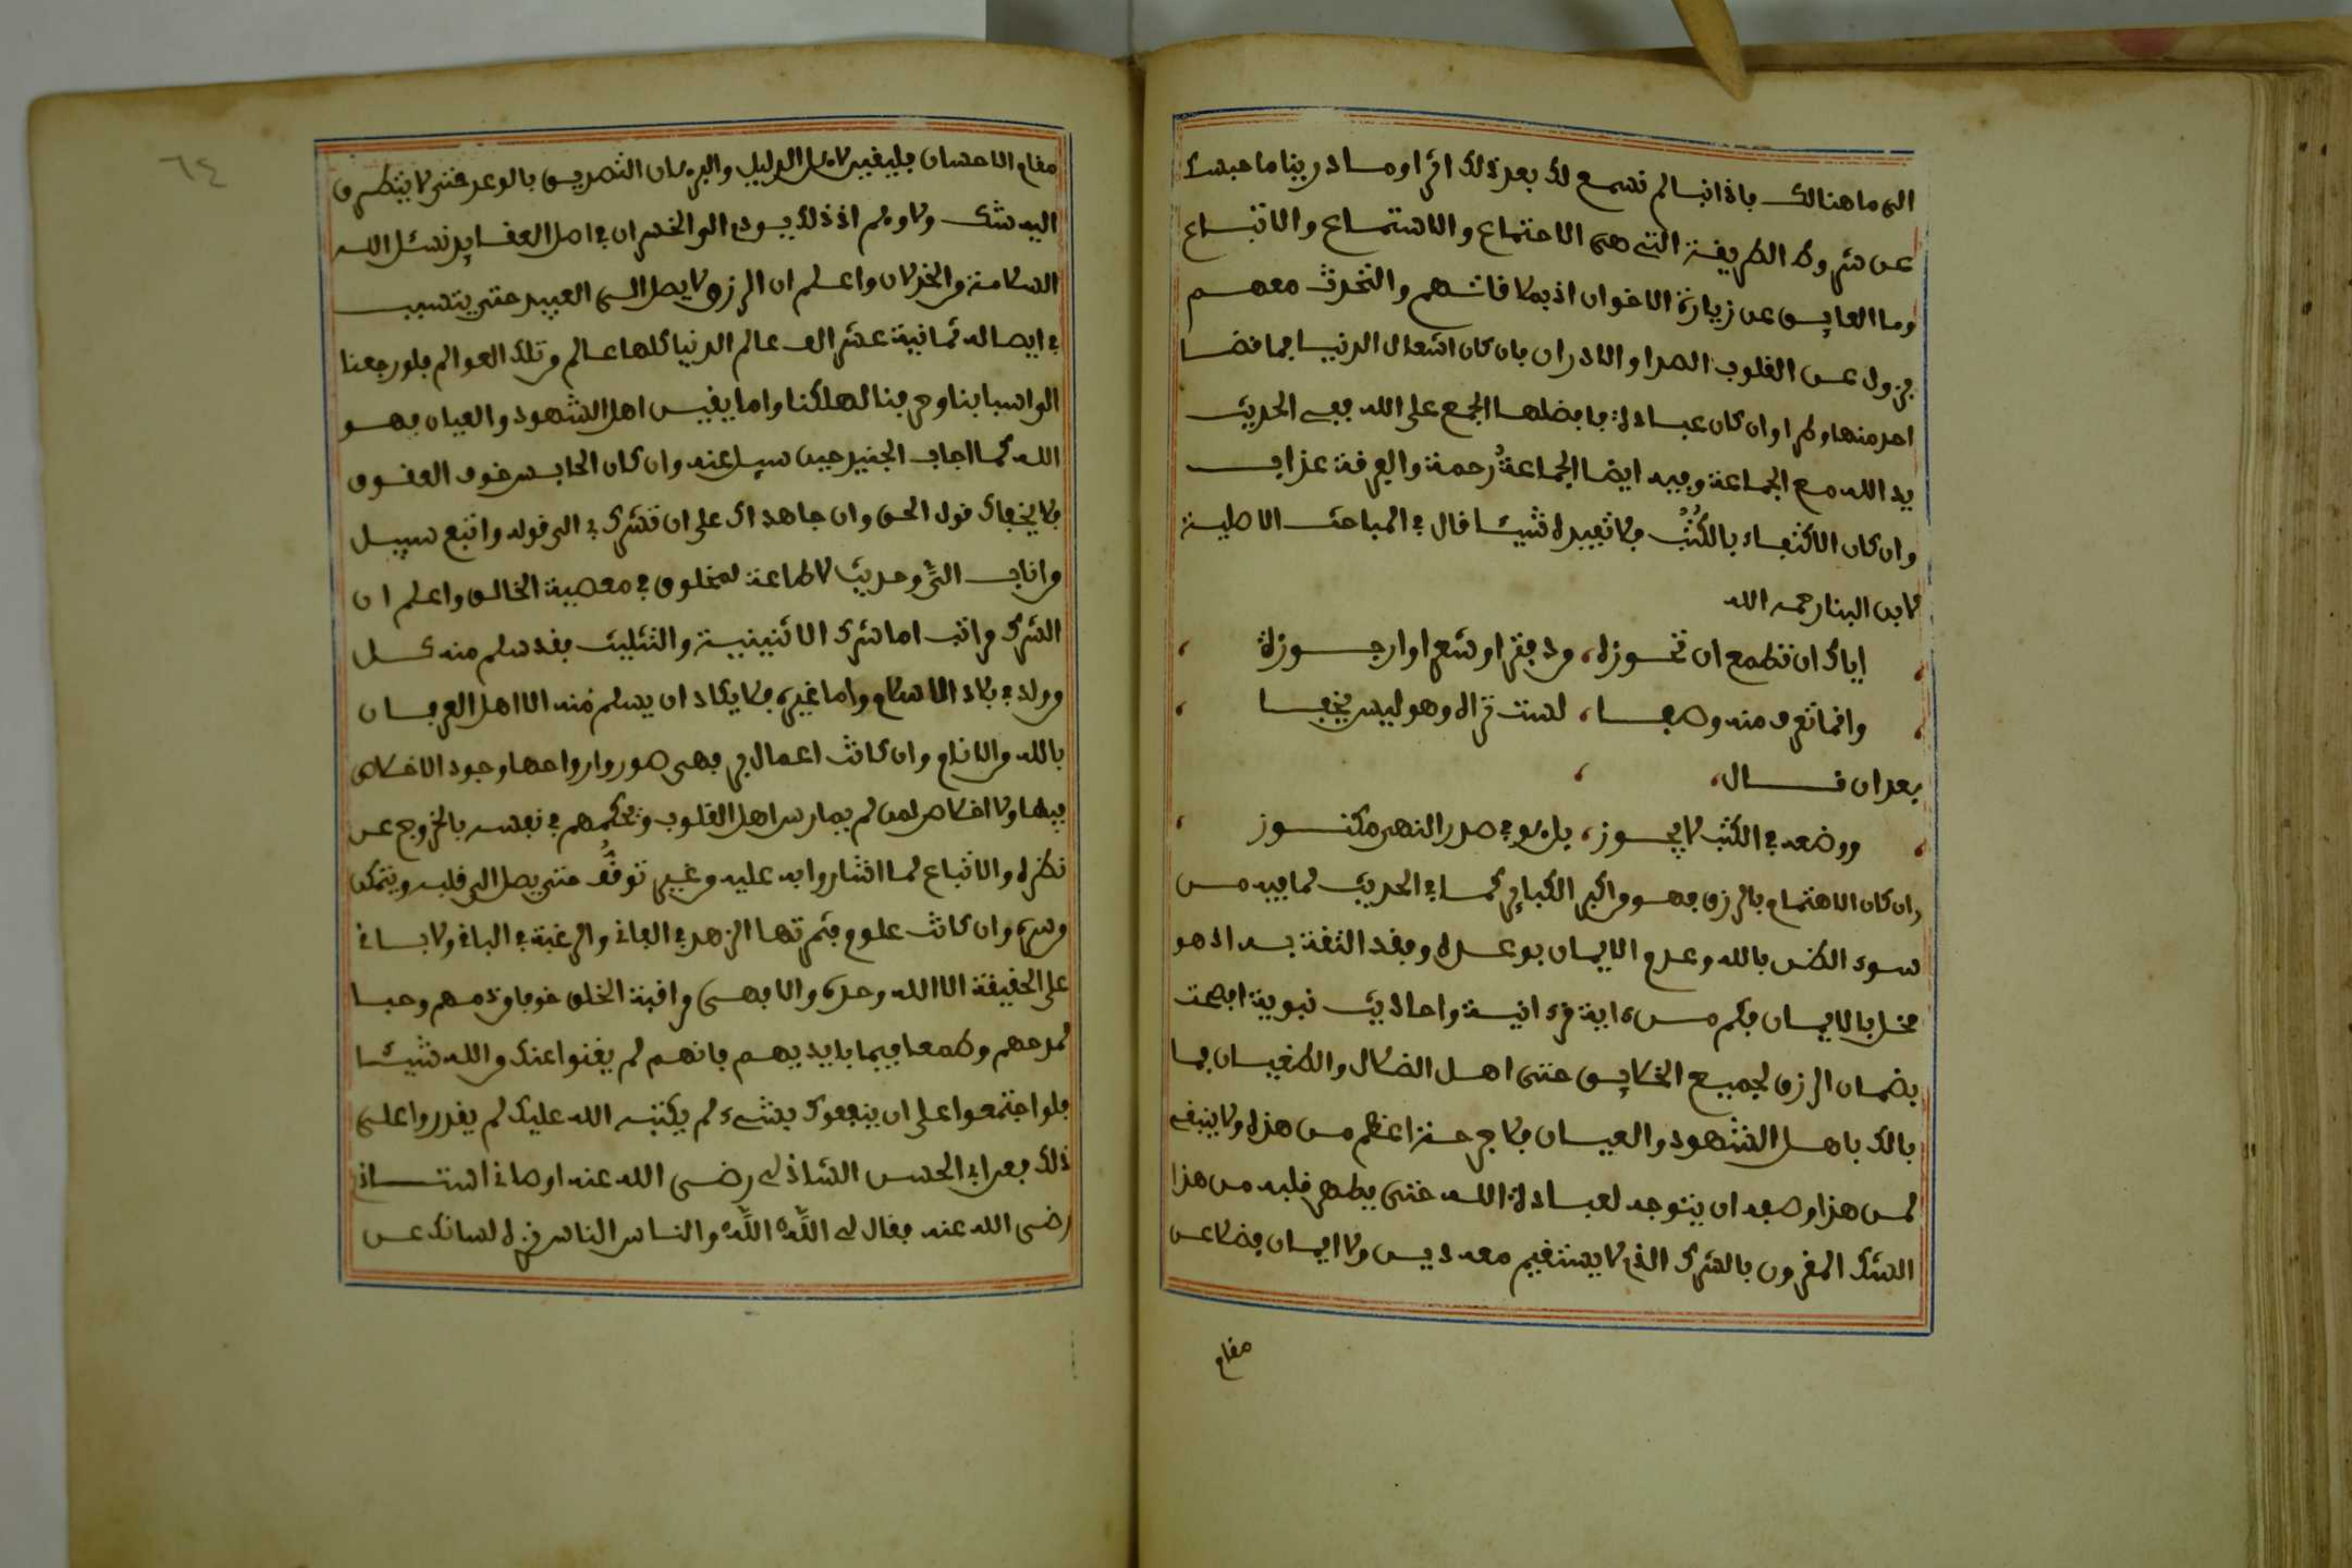 الى ما هنالك فاذا انبا لم نسمع لك بعد ذلك اثرا وما درينا ما حبسك
عن شروط الطريقة التي هي الاجتماع والاستماع والاتباع
وما العايق عن زيارة الاخوان اذ بملاقاتهم والتحدث معهم
يزول عن القلوب الصدا والادران فان كان اشغال الدنيا فما قضا
احد منها وطرا وان كان عبادة فافضلها الجمع على الله ففي الحديث
يد الله مع الجماعة وفيه ايضا الجماعةُ رحمة والفرقة عذاب
وان كان الاكتفاء بالكُتُبُ فلا تفيده شيئا قال في المباحث الاصلية
لابن البنا رحمه الله
اياك ان تطمع ان تحوزه، من دفتر او شعر او ارجوزة
وانما تعرف منه وصفا، لست تراه وهو ليس يخفا
بعد ان قال،
ووضعه في الكتب لا يجوز، بل هو في صدر النهى مكنوز
وان كان الاهتمام بالرزق فهو من اكبر الكباير كما في الحديث لما فيه من
سوء الظن بالله وعدم الايمان بوعده وفقد الثقة به اذ هو
مخل بالايمان فكم من ءاية قرءانية واحاديث نبوية افصحت
بضمان الرزق لجميع الخلايق حتى اهل الضلال والطغيان فما
بالك باهل الشهود والعيان فلا جرحة اعظم من هذه ولا ينبغي
لمن هذا وصفه ان يتوجه لعبادة الله حتى يطهر قلبه من هذا
الشك المقرون بالشرك الذي لا يستقيم معه دين ولا ايمان فضلا عن
مقام
مقام الاحسان فليقيد لاهل الدليل والبرهان التصديق بالوعد حتى لا يتطرق
اليه شك ولا وهم اذ ذلك يسوق الى الخسران في اصل العقايد نسئل الله
السلامة من الخذلان واعلم ان الرزق لا يصل الى العبيد حتى يتسبب
في ايصاله ثمانية عشر الف عالم الدنيا كلها عالم من تلك العوالم فلو رجعنا
الى اسبابنا وحرفنا لهلكنا واما يقين اهل الشهود والعيان فهو
الله كما اجاب الجنيد حين سيل عنه وان كان الحابس خوف العقوق
فلا يخفاك قول الحق وان جاهداك على ان تشرك بي الى قوله واتبع سبيل
من اناب الىَّ وحديث لا طاعة لمخلوق في معصية الخالق واعلم ان
الشرك مراتب اما شرك الاثنينية والتثليث فقد سلم منه كل
من ولد في بلاد الاسلام واما غيره فلا يكاد ان يسلم منه الا اهل العرفان
بالله من الانام وان كانت اعمال بر فهي صور وارواحها وجود الاخلاص
فيها ولا اخلاص لمن لم يمارس اهل القلوب وتحكمهم في نفسه بالخروج عن
نظره والاتباع لما اشاروا به عليه من غير توقُّف حتى يصل الى قلبه ويتمكن
من سره وان كانت علوم فثمرتها الزهد في الفاني والرغبة في الباقي ولا باقي
على الحقيقة الا الله وحده والا فهي مراقبة الخلق خوفا من ذمهم وحبا
لمدحهم وطمعا فيما بايديهم فانهم لم يغنوا عنك من الله شيئا
فلو اجتمعوا على ان ينفعوك بشيء لم يكتبه الله عليك لم يقدروا على
ذلك فعن ابي الحسن الشاذلي رضي الله عنه اوصاني استاذي
رضي الله عنه فقال لي اللَّهَ اللَّهَ والناس الناس نزه لسانك عن
٦٤